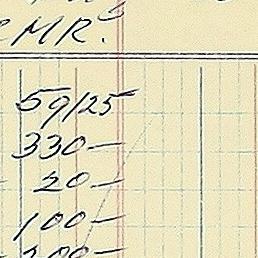 MR.
59/25
330—
20—
100—
200—